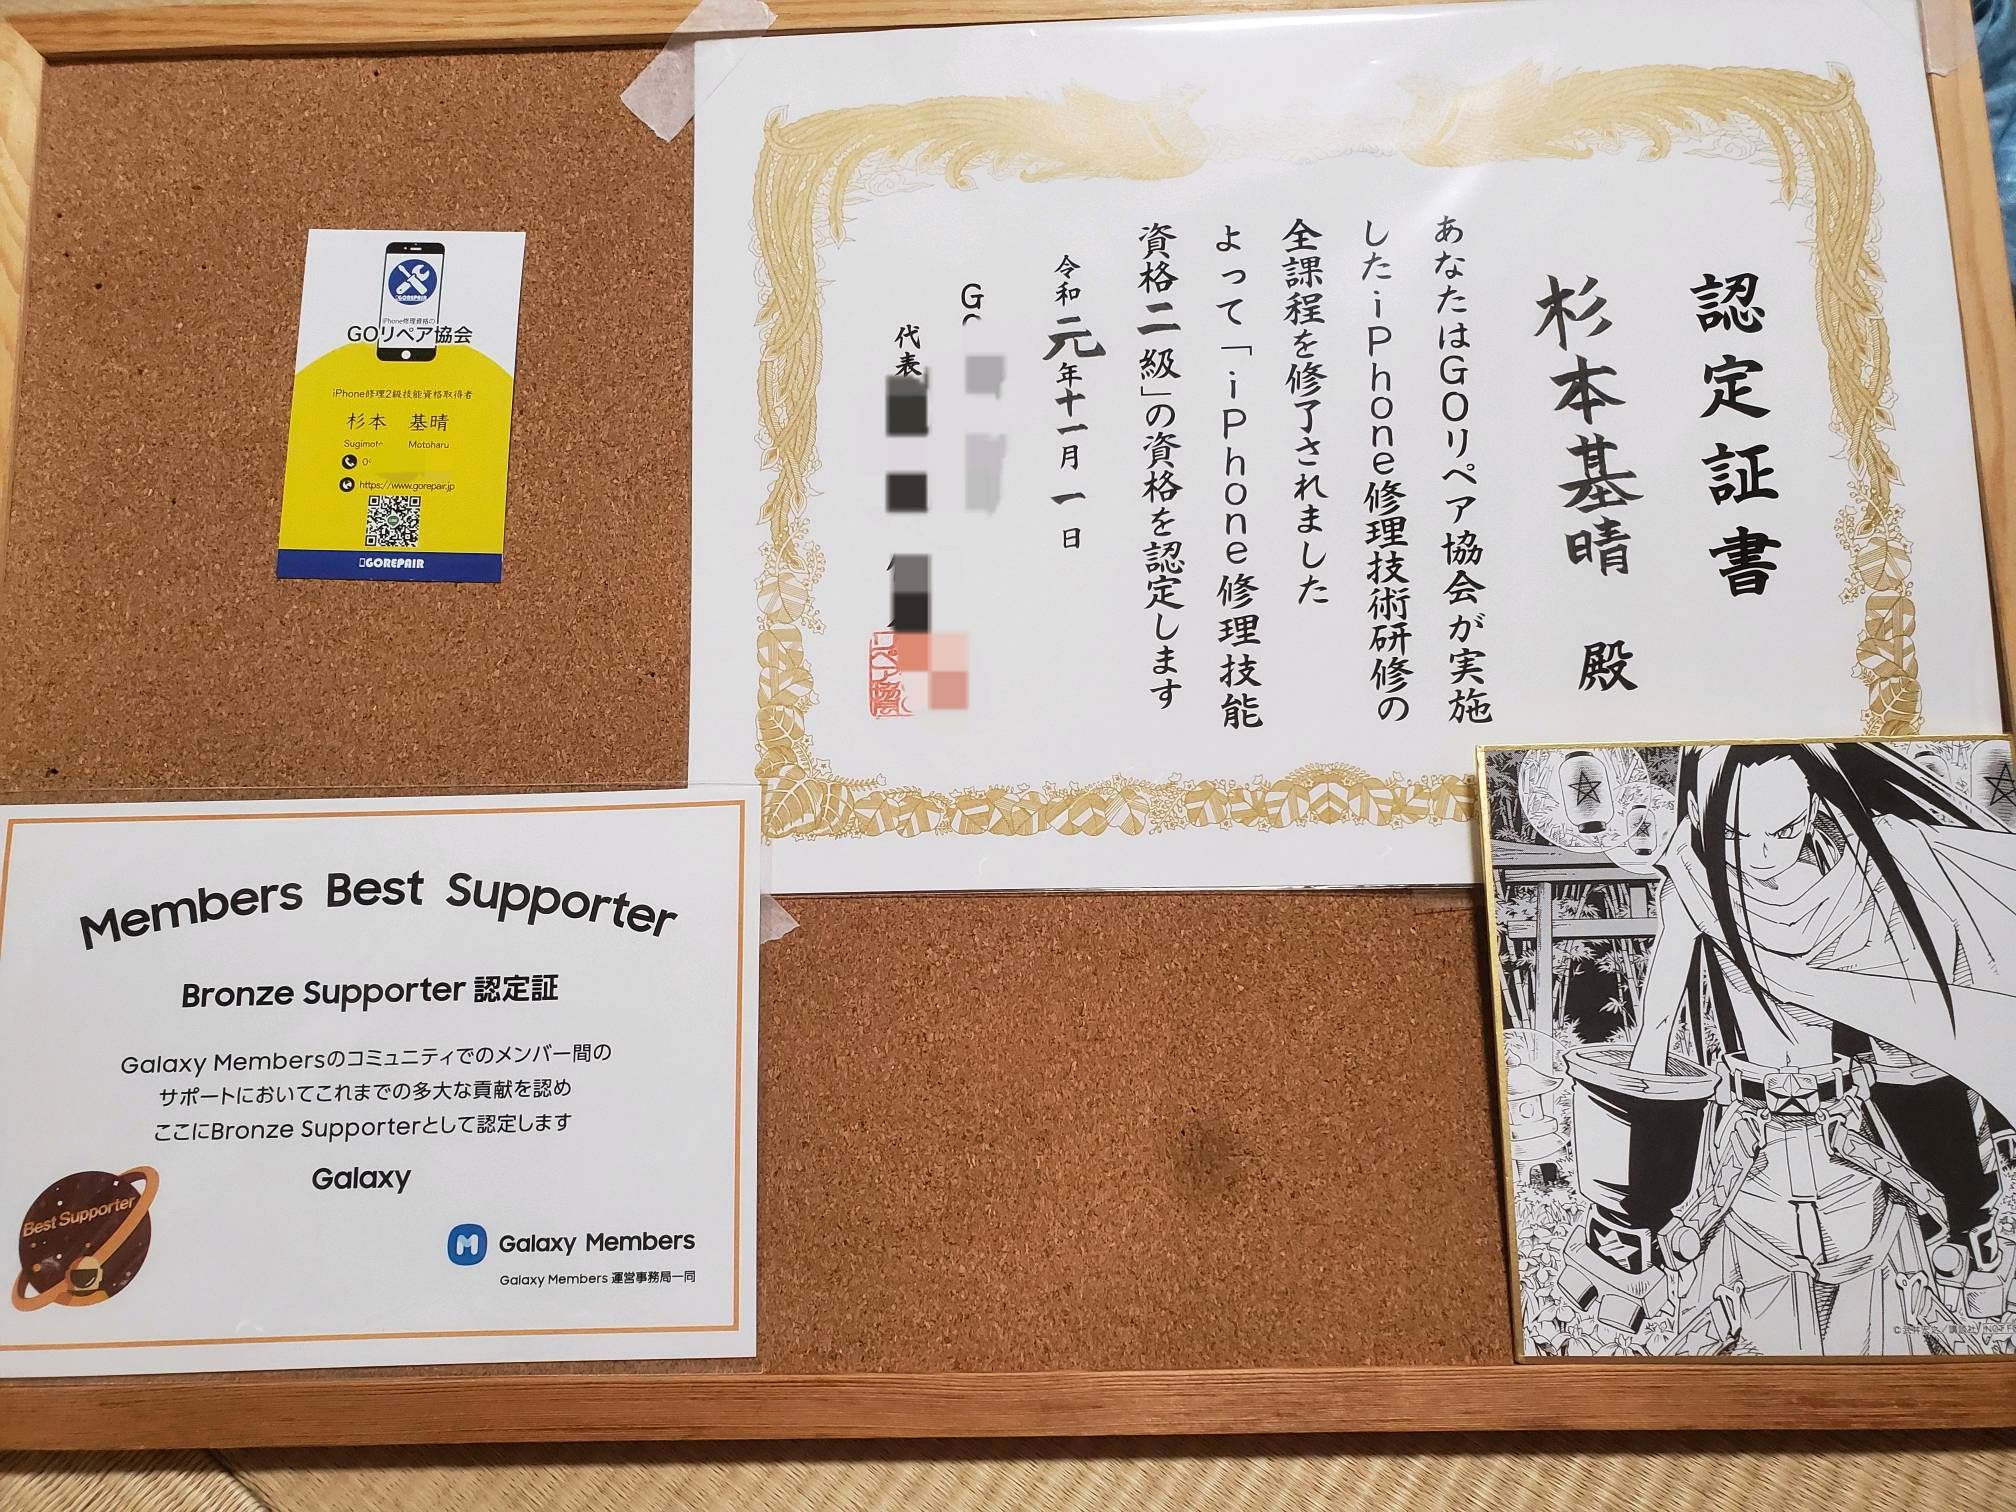 認定証書
杉本基晴 殿
あなたはGOリペア協会が実施
したiPhone修理技術研修の
全課程を修了されました
よって「iPhone修理技能
資格二級」の資格を認定します
令和元年十一月一日
G
代表
GOREPAIR
iPhone修理資格の
GOリペア協会
iPhone修理2級技能資格取得者
杉本 基晴
Sugimoto Motoharu
0
https://www.gorepair.jp
GOREPAIR
Members Best Supporter
Bronze Supporter 認定証
Galaxy Membersのコミュニティでのメンバー間の
サポートにおいてこれまでの多大な貢献を認め
ここにBronze Supporterとして認定します
Galaxy
Best Supporter
Galaxy Members
Galaxy Members 運営事務局一同